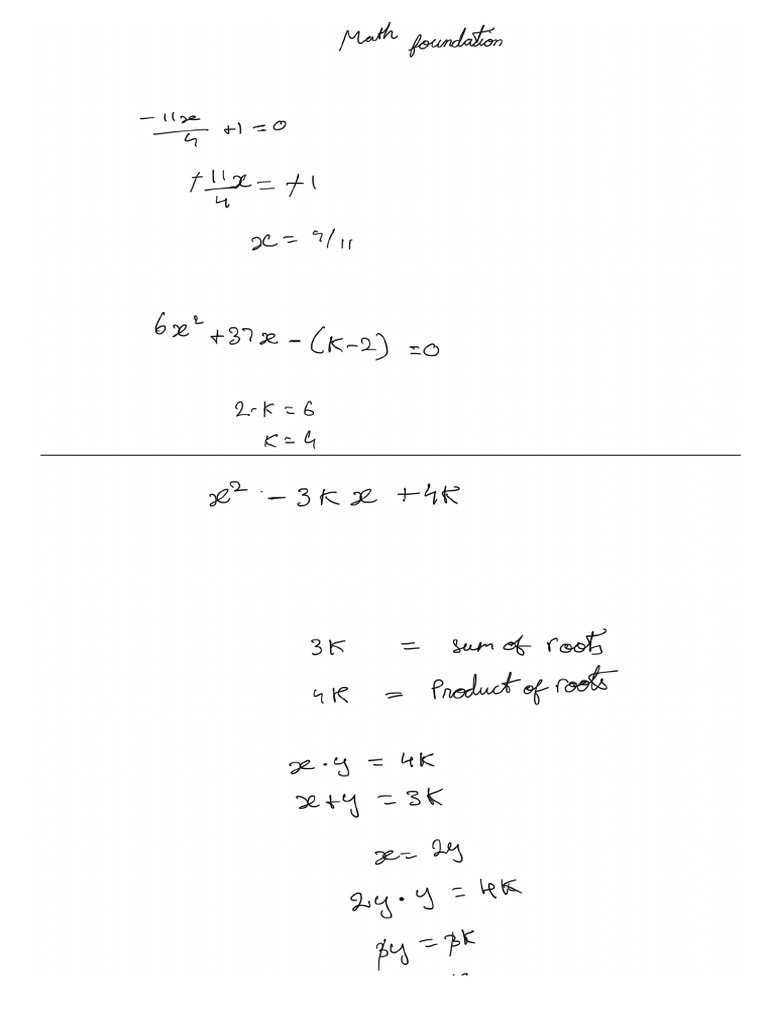 Math foundation
-11x/4 +1 = 0
+11x/4 = +1
x = 4/11
6x² + 37x - (K-2) = 0
2-K = 6
K = 4
x² - 3Kx + 4K
3K = sum of roots
4K = Product of roots
x·y = 4K
x+y = 3K
x = 2y
2y·y = 4K
3y = 3K